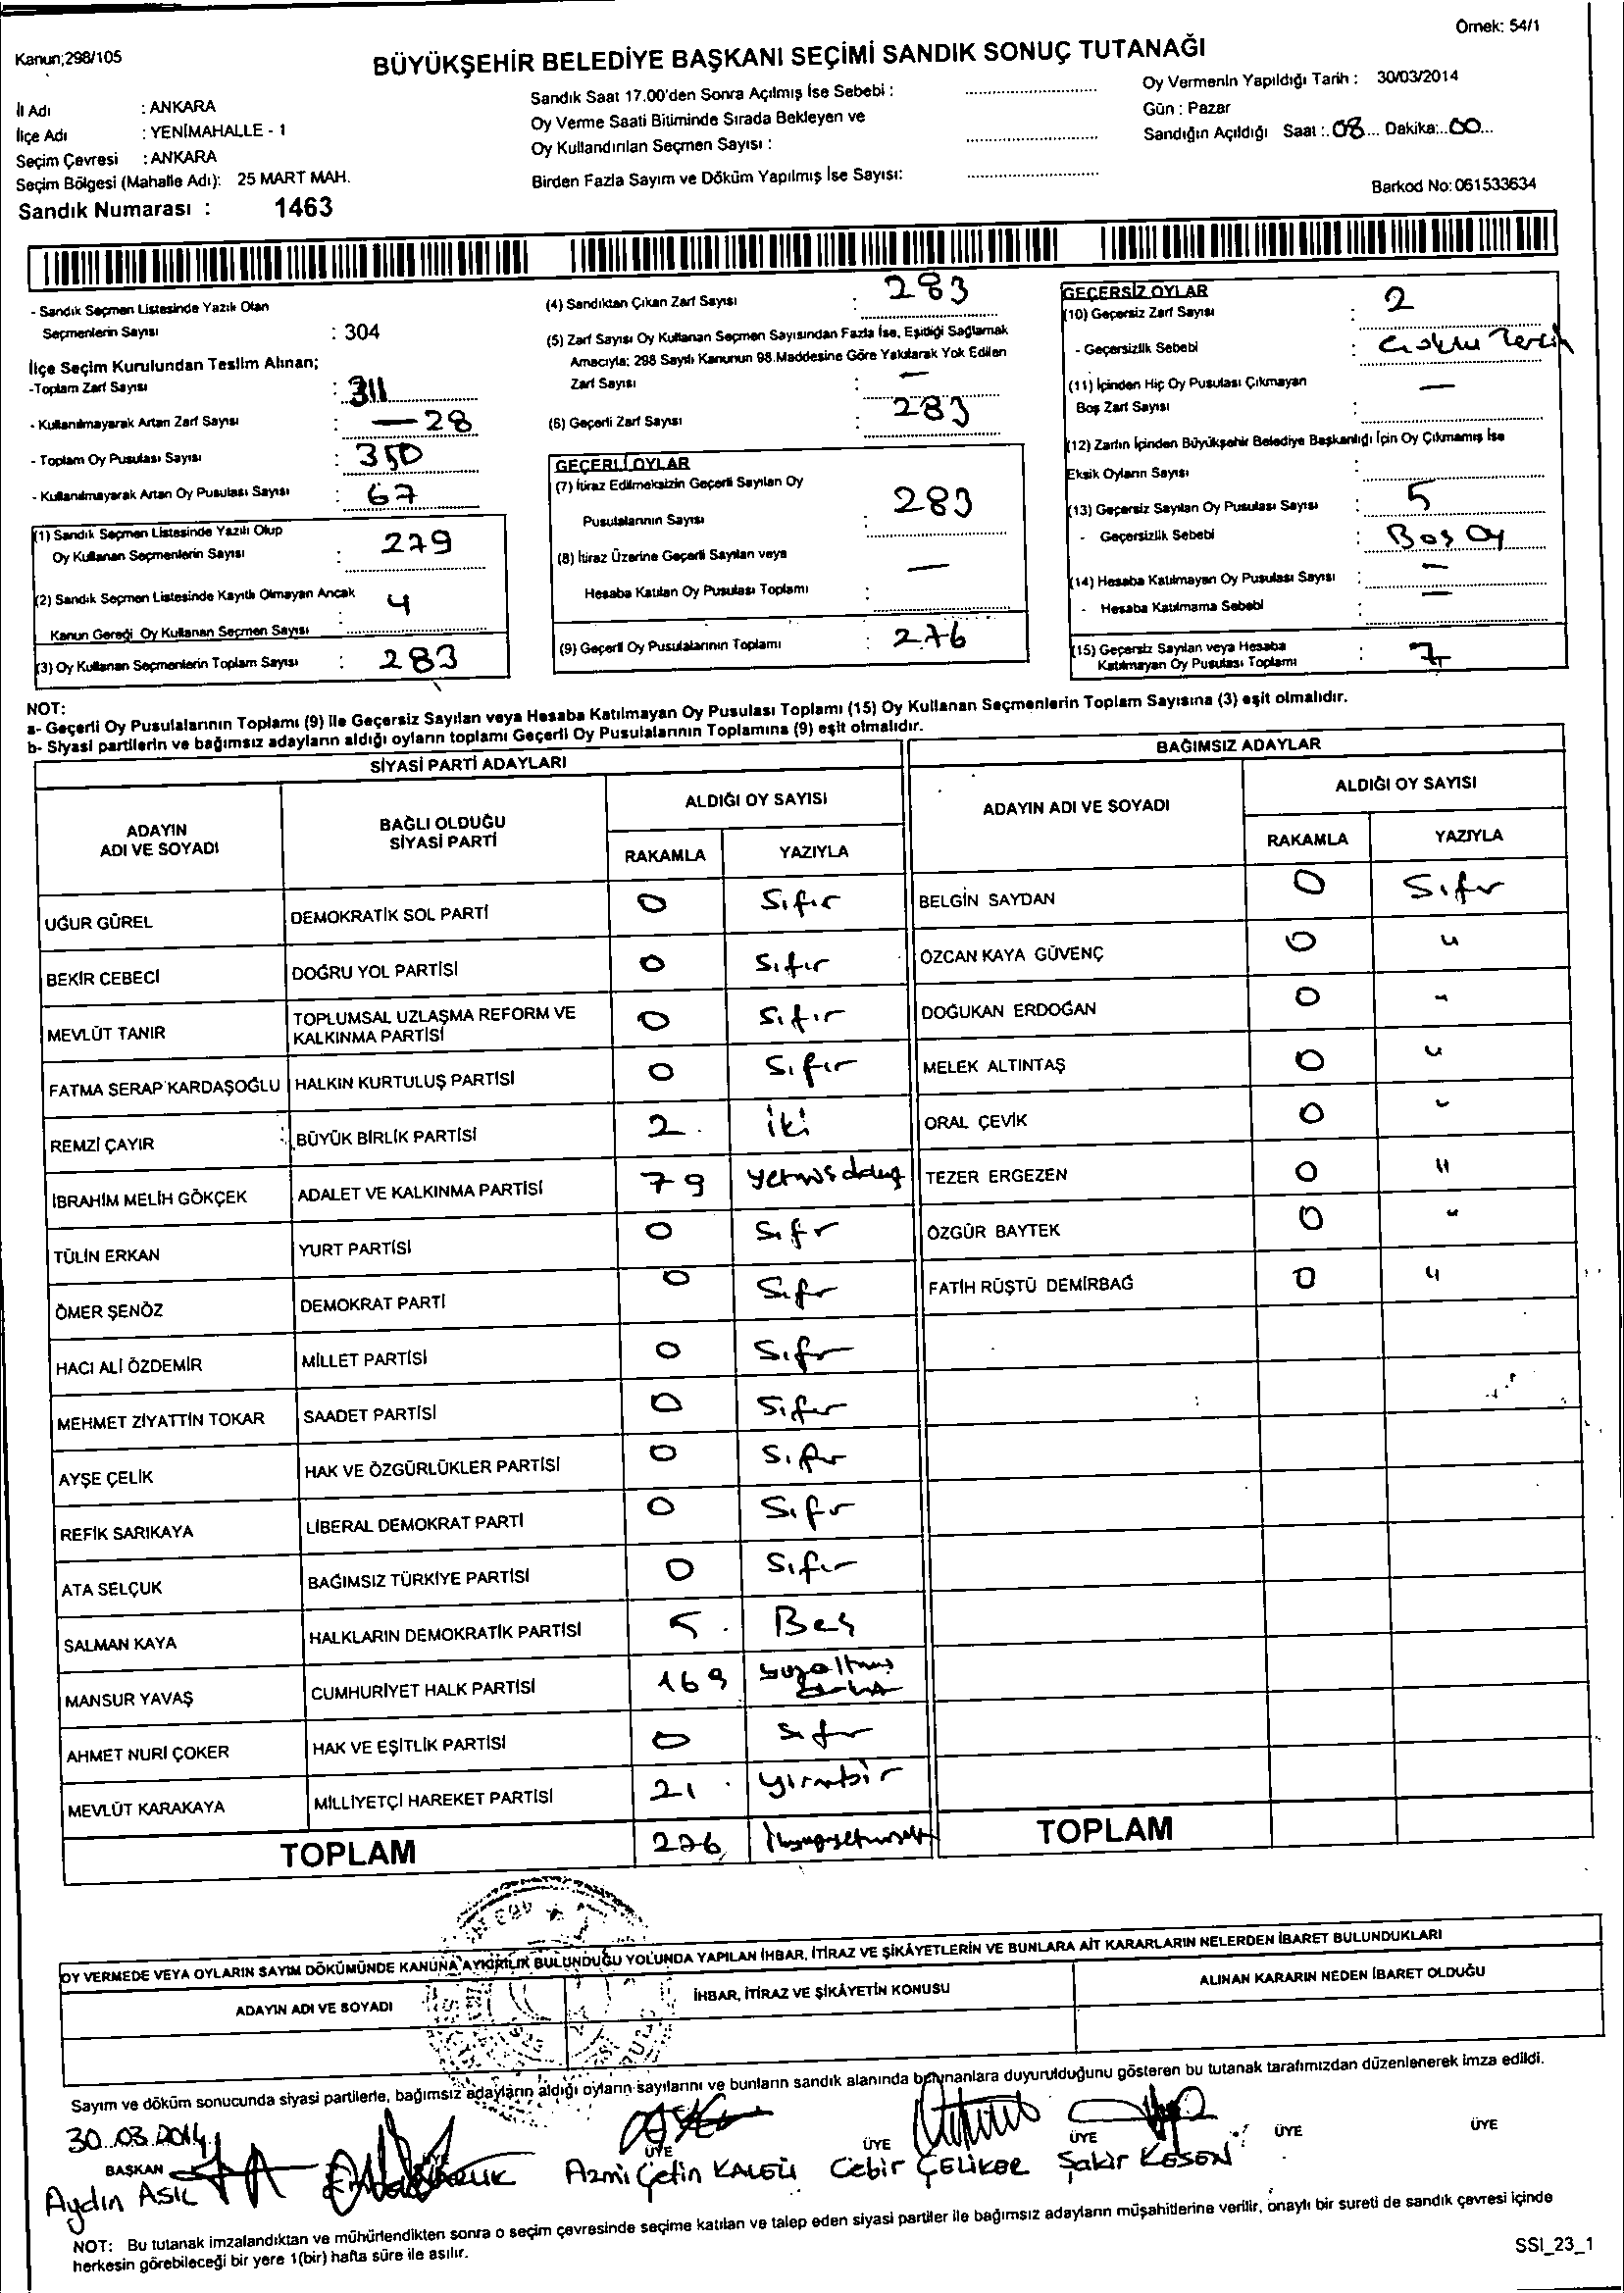 Örnek: 54/1
Kanun;298/105
BÜYÜKŞEHİR BELEDİYE BAŞKANI SEÇİMİ SANDIK SONUÇ TUTANAĞI
İl Adı : ANKARA
İlçe Adı : YENİMAHALLE - 1
Seçim Çevresi : ANKARA
Seçim Bölgesi (Mahalle Adı): 25 MART MAH.
Sandık Numarası : 1463
Sandık Saat 17.00'den Sonra Açılmış İse Sebebi :
Oy Verme Saati Bitiminde Sırada Bekleyen ve
Oy Kullandırılan Seçmen Sayısı :
Birden Fazla Sayım ve Döküm Yapılmış İse Sayısı:
Oy Vermenin Yapıldığı Tarih : 30/03/2014
Gün : Pazar
Sandığın Açıldığı Saat :.08... Dakika:..00...
Barkod No: 061533634
- Sandık Seçmen Listesinde Yazılı Olan
Seçmenlerin Sayısı : 304
İlçe Seçim Kurulundan Teslim Alınan;
-Toplam Zarf Sayısı : 311
- Kullanılmayarak Artan Zarf Sayısı : — 28
- Toplam Oy Pusulası Sayısı : 350
- Kullanılmayarak Artan Oy Pusulası Sayısı : 67
(1) Sandık Seçmen Listesinde Yazılı Olup
Oy Kullanan Seçmenlerin Sayısı : 279
(2) Sandık Seçmen Listesinde Kayıtlı Olmayan Ancak
Kanun Gereği Oy Kullanan Seçmen Sayısı 4
(3) Oy Kullanan Seçmenlerin Toplam Sayısı : 283
(4) Sandıktan Çıkan Zarf Sayısı : 283
(5) Zarf Sayısı Oy Kullanan Seçmen Sayısından Fazla İse, Eşitliği Sağlamak
Amacıyla; 298 Sayılı Kanunun 98.Maddesine Göre Yakılarak Yok Edilen
Zarf Sayısı : —
(6) Geçerli Zarf Sayısı : 283
GEÇERLİ OYLAR
(7) İtiraz Edilmeksizin Geçerli Sayılan Oy
Pusulalarının Sayısı : 283
(8) İtiraz Üzerine Geçerli Sayılan veya
Hesaba Katılan Oy Pusulası Toplamı : —
(9) Geçerli Oy Pusulalarının Toplamı : 276
GEÇERSİZ OYLAR
(10) Geçersiz Zarf Sayısı : 2
- Geçersizlik Sebebi :
(11) İçinden Hiç Oy Pusulası Çıkmayan —
Boş Zarf Sayısı :
(12) Zarfın İçinden Büyükşehir Belediye Başkanlığı İçin Oy Çıkmamış İse
Eksik Oyların Sayısı :
(13) Geçersiz Sayılan Oy Pusulası Sayısı : 5
- Geçersizlik Sebebi : Boş Oy
(14) Hesaba Katılmayan Oy Pusulası Sayısı : —
- Hesaba Katılmama Sebebi : —
(15) Geçersiz Sayılan veya Hesaba
Katılmayan Oy Pusulası Toplamı : 7
NOT:
a- Geçerli Oy Pusulalarının Toplamı (9) ile Geçersiz Sayılan veya Hesaba Katılmayan Oy Pusulası Toplamı (15) Oy Kullanan Seçmenlerin Toplam Sayısına (3) eşit olmalıdır.
b- Siyasi partilerin ve bağımsız adayların aldığı oyların toplamı Geçerli Oy Pusulalarının Toplamına (9) eşit olmalıdır.
SİYASİ PARTİ ADAYLARI
ADAYIN
ADI VE SOYADI
BAĞLI OLDUĞU
SİYASİ PARTİ
ALDIĞI OY SAYISI
RAKAMLA YAZIYLA
UĞUR GÜREL DEMOKRATİK SOL PARTİ 0 Sıfır
BEKİR CEBECİ DOĞRU YOL PARTİSİ 0 Sıfır
MEVLÜT TANIR TOPLUMSAL UZLAŞMA REFORM VE
KALKINMA PARTİSİ 0 Sıfır
FATMA SERAP KARDAŞOĞLU HALKIN KURTULUŞ PARTİSİ 0 Sıfır
REMZİ ÇAYIR BÜYÜK BİRLİK PARTİSİ 2 iki
İBRAHİM MELİH GÖKÇEK ADALET VE KALKINMA PARTİSİ 79
TÜLİN ERKAN YURT PARTİSİ 0 Sıfr
ÖMER ŞENÖZ DEMOKRAT PARTİ 0 Sıfr
HACI ALİ ÖZDEMİR MİLLET PARTİSİ 0 Sıfr
MEHMET ZİYATTİN TOKAR SAADET PARTİSİ 0 Sıfır
AYŞE ÇELİK HAK VE ÖZGÜRLÜKLER PARTİSİ 0 Sıfır
REFİK SARIKAYA LİBERAL DEMOKRAT PARTİ 0 Sıfr
ATA SELÇUK BAĞIMSIZ TÜRKİYE PARTİSİ 0 Sıfır
SALMAN KAYA HALKLARIN DEMOKRATİK PARTİSİ 5 Beş
MANSUR YAVAŞ CUMHURİYET HALK PARTİSİ 169
AHMET NURİ ÇOKER HAK VE EŞİTLİK PARTİSİ 0 sıfr
MEVLÜT KARAKAYA MİLLİYETÇİ HAREKET PARTİSİ 21
TOPLAM 276
BAĞIMSIZ ADAYLAR
ADAYIN ADI VE SOYADI
ALDIĞI OY SAYISI
RAKAMLA YAZIYLA
BELGİN SAYDAN 0 Sıfr
ÖZCAN KAYA GÜVENÇ 0 "
DOĞUKAN ERDOĞAN 0 "
MELEK ALTINTAŞ 0 "
ORAL ÇEVİK 0 "
TEZER ERGEZEN 0 "
ÖZGÜR BAYTEK 0 "
FATİH RÜŞTÜ DEMİRBAĞ 0 "
TOPLAM
OY VERMEDE VEYA OYLARIN SAYIM DÖKÜMÜNDE KANUNA AYKIRILIK BULUNDUĞU YOLUNDA YAPILAN İHBAR, İTİRAZ VE ŞİKÂYETLERİN VE BUNLARA AİT KARARLARIN NELERDEN İBARET BULUNDUKLARI
ADAYIN ADI VE SOYADI
İHBAR, İTİRAZ VE ŞİKÂYETİN KONUSU
ALINAN KARARIN NEDEN İBARET OLDUĞU
Sayım ve döküm sonucunda siyasi partilerle, bağımsız adayların aldığı oyların sayılarını ve bunların sandık alanında bulunanlara duyurulduğunu gösteren bu tutanak tarafımızdan düzenlenerek imza edildi.
30.03.2014
BAŞKAN ÜYE ÜYE ÜYE ÜYE ÜYE
Aydın ASIL Azmi Çetin Cebir ÇELİKER Şakir KESEN
NOT: Bu tutanak imzalandıktan ve mühürlendikten sonra o seçim çevresinde seçime katılan ve talep eden siyasi partiler ile bağımsız adayların müşahitlerine verilir, onaylı bir sureti de sandık çevresi içinde
herkesin görebileceği bir yere 1(bir) hafta süre ile asılır.
SSI_23_1